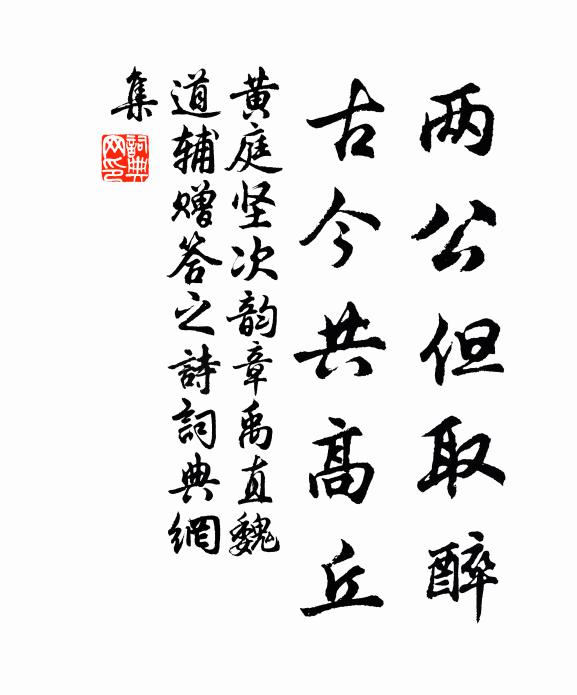 两公但取醉
古今共高丘
黄庭坚次韵章禹直魏
道辅赠答之詩詞典網
集
詞典网印